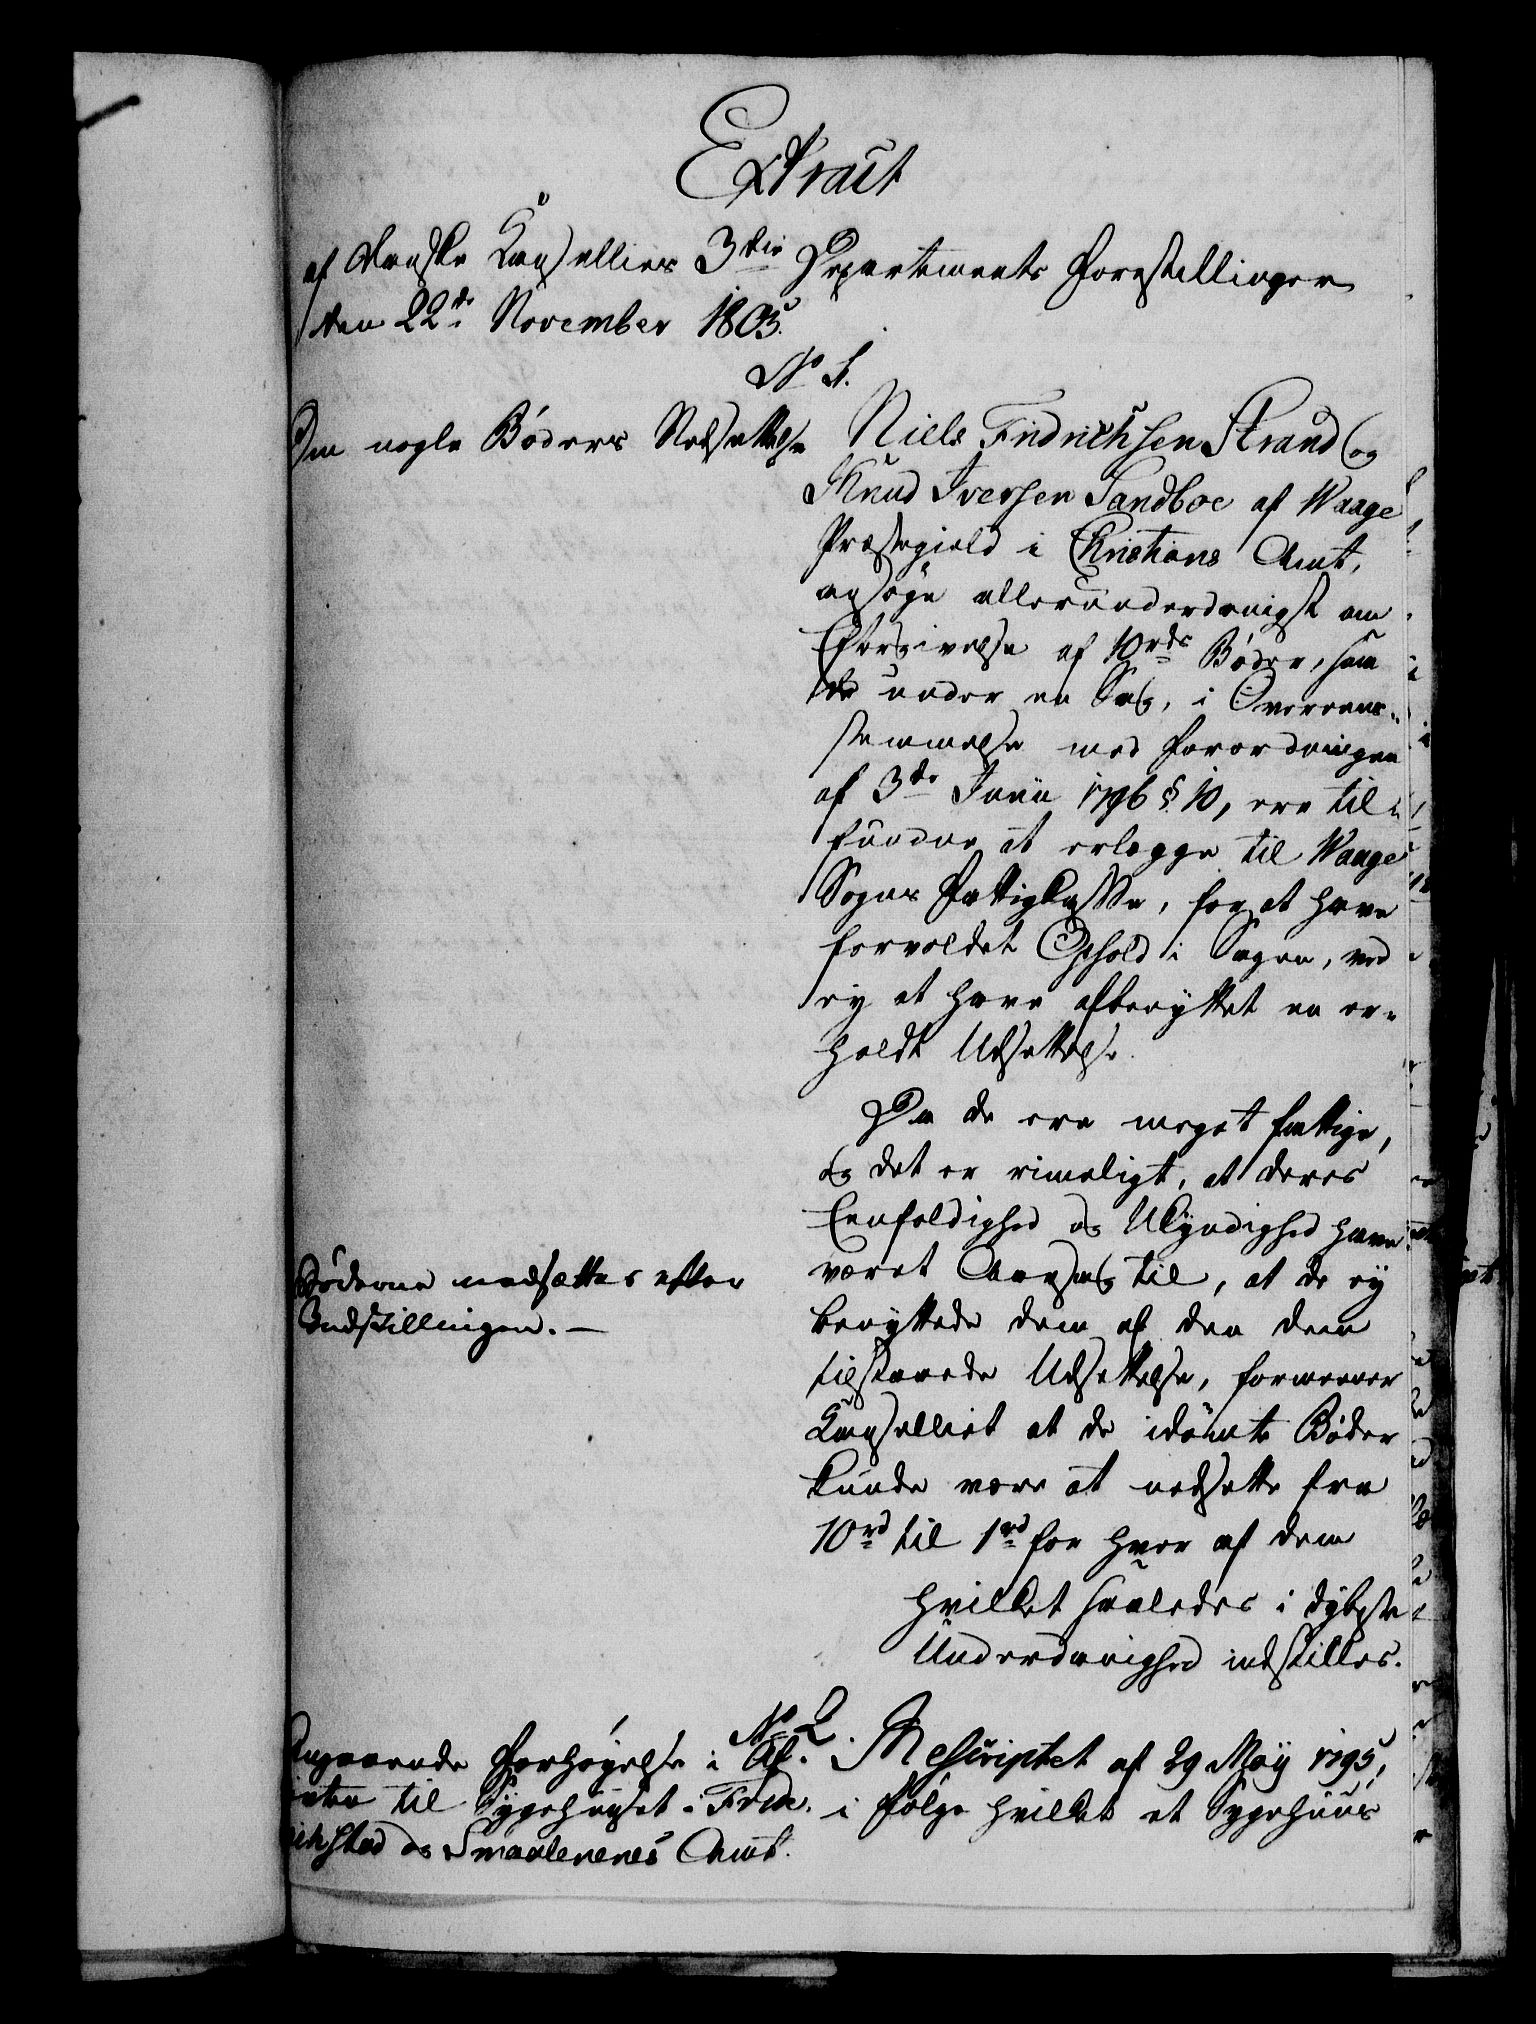 Extract
af danske Cancellies 3die Departements Forestillinger
den 22de November 1805.
No 1.
Om nogle Böders Nedsættelse
Niels Fridrichsen Strand og
Knud Iversen Sandboe af Waage
Præstegield i Christians Amt,
ansøge allerunderdanigst om
Eftergivelse af 10rdr Bøder, som
de under en Sag, i Overeens-
stemmelse med Forordningen
af 3die Junii 1796 § 10, ere til-
fundne at erlægge til Waage
Sogns Fattigkasse, for at have
forvoldet Ophold i Sagen, ved
ey at have afbenyttet en er-
holdt Udsættelse.
Da de ere meget fattige,
og det er rimeligt, at deres
Eenfoldighed og Ukyndighed have
været Aarsag til, at de ey
benyttede dem af den dem
tilstaaede Udsættelse, formeener
Cancelliet at de idømte Bøder
kunde være at nedsætte fra
10rd til 1rd for hver af dem
hvilket saaledes i dybeste
Underdanighed indstilles.
Bøderne nedsættes efter
Indstillingen. —
No 2.
Angaaende Forhøyelse i Af-
giften til Sygehuset i Frid-
richstad og Smaalenenes Amt.
Rescriptet af 29 Maij 1795,
i følge hvilket et Sygehuus